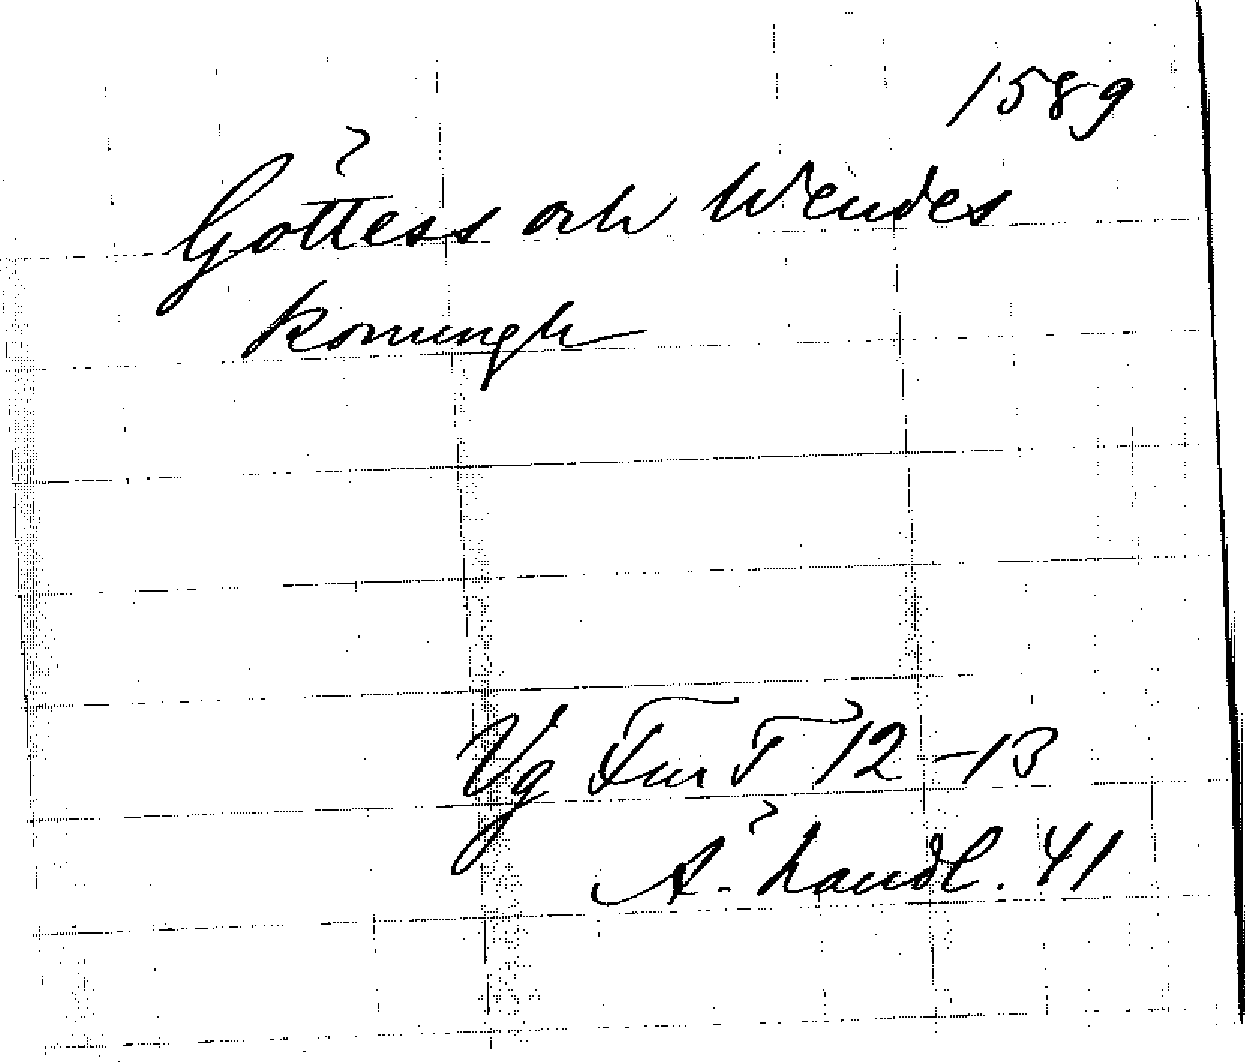 1589
Göttess och Wendes
konungh
Vg Fur T 12-13
A. handl. 41